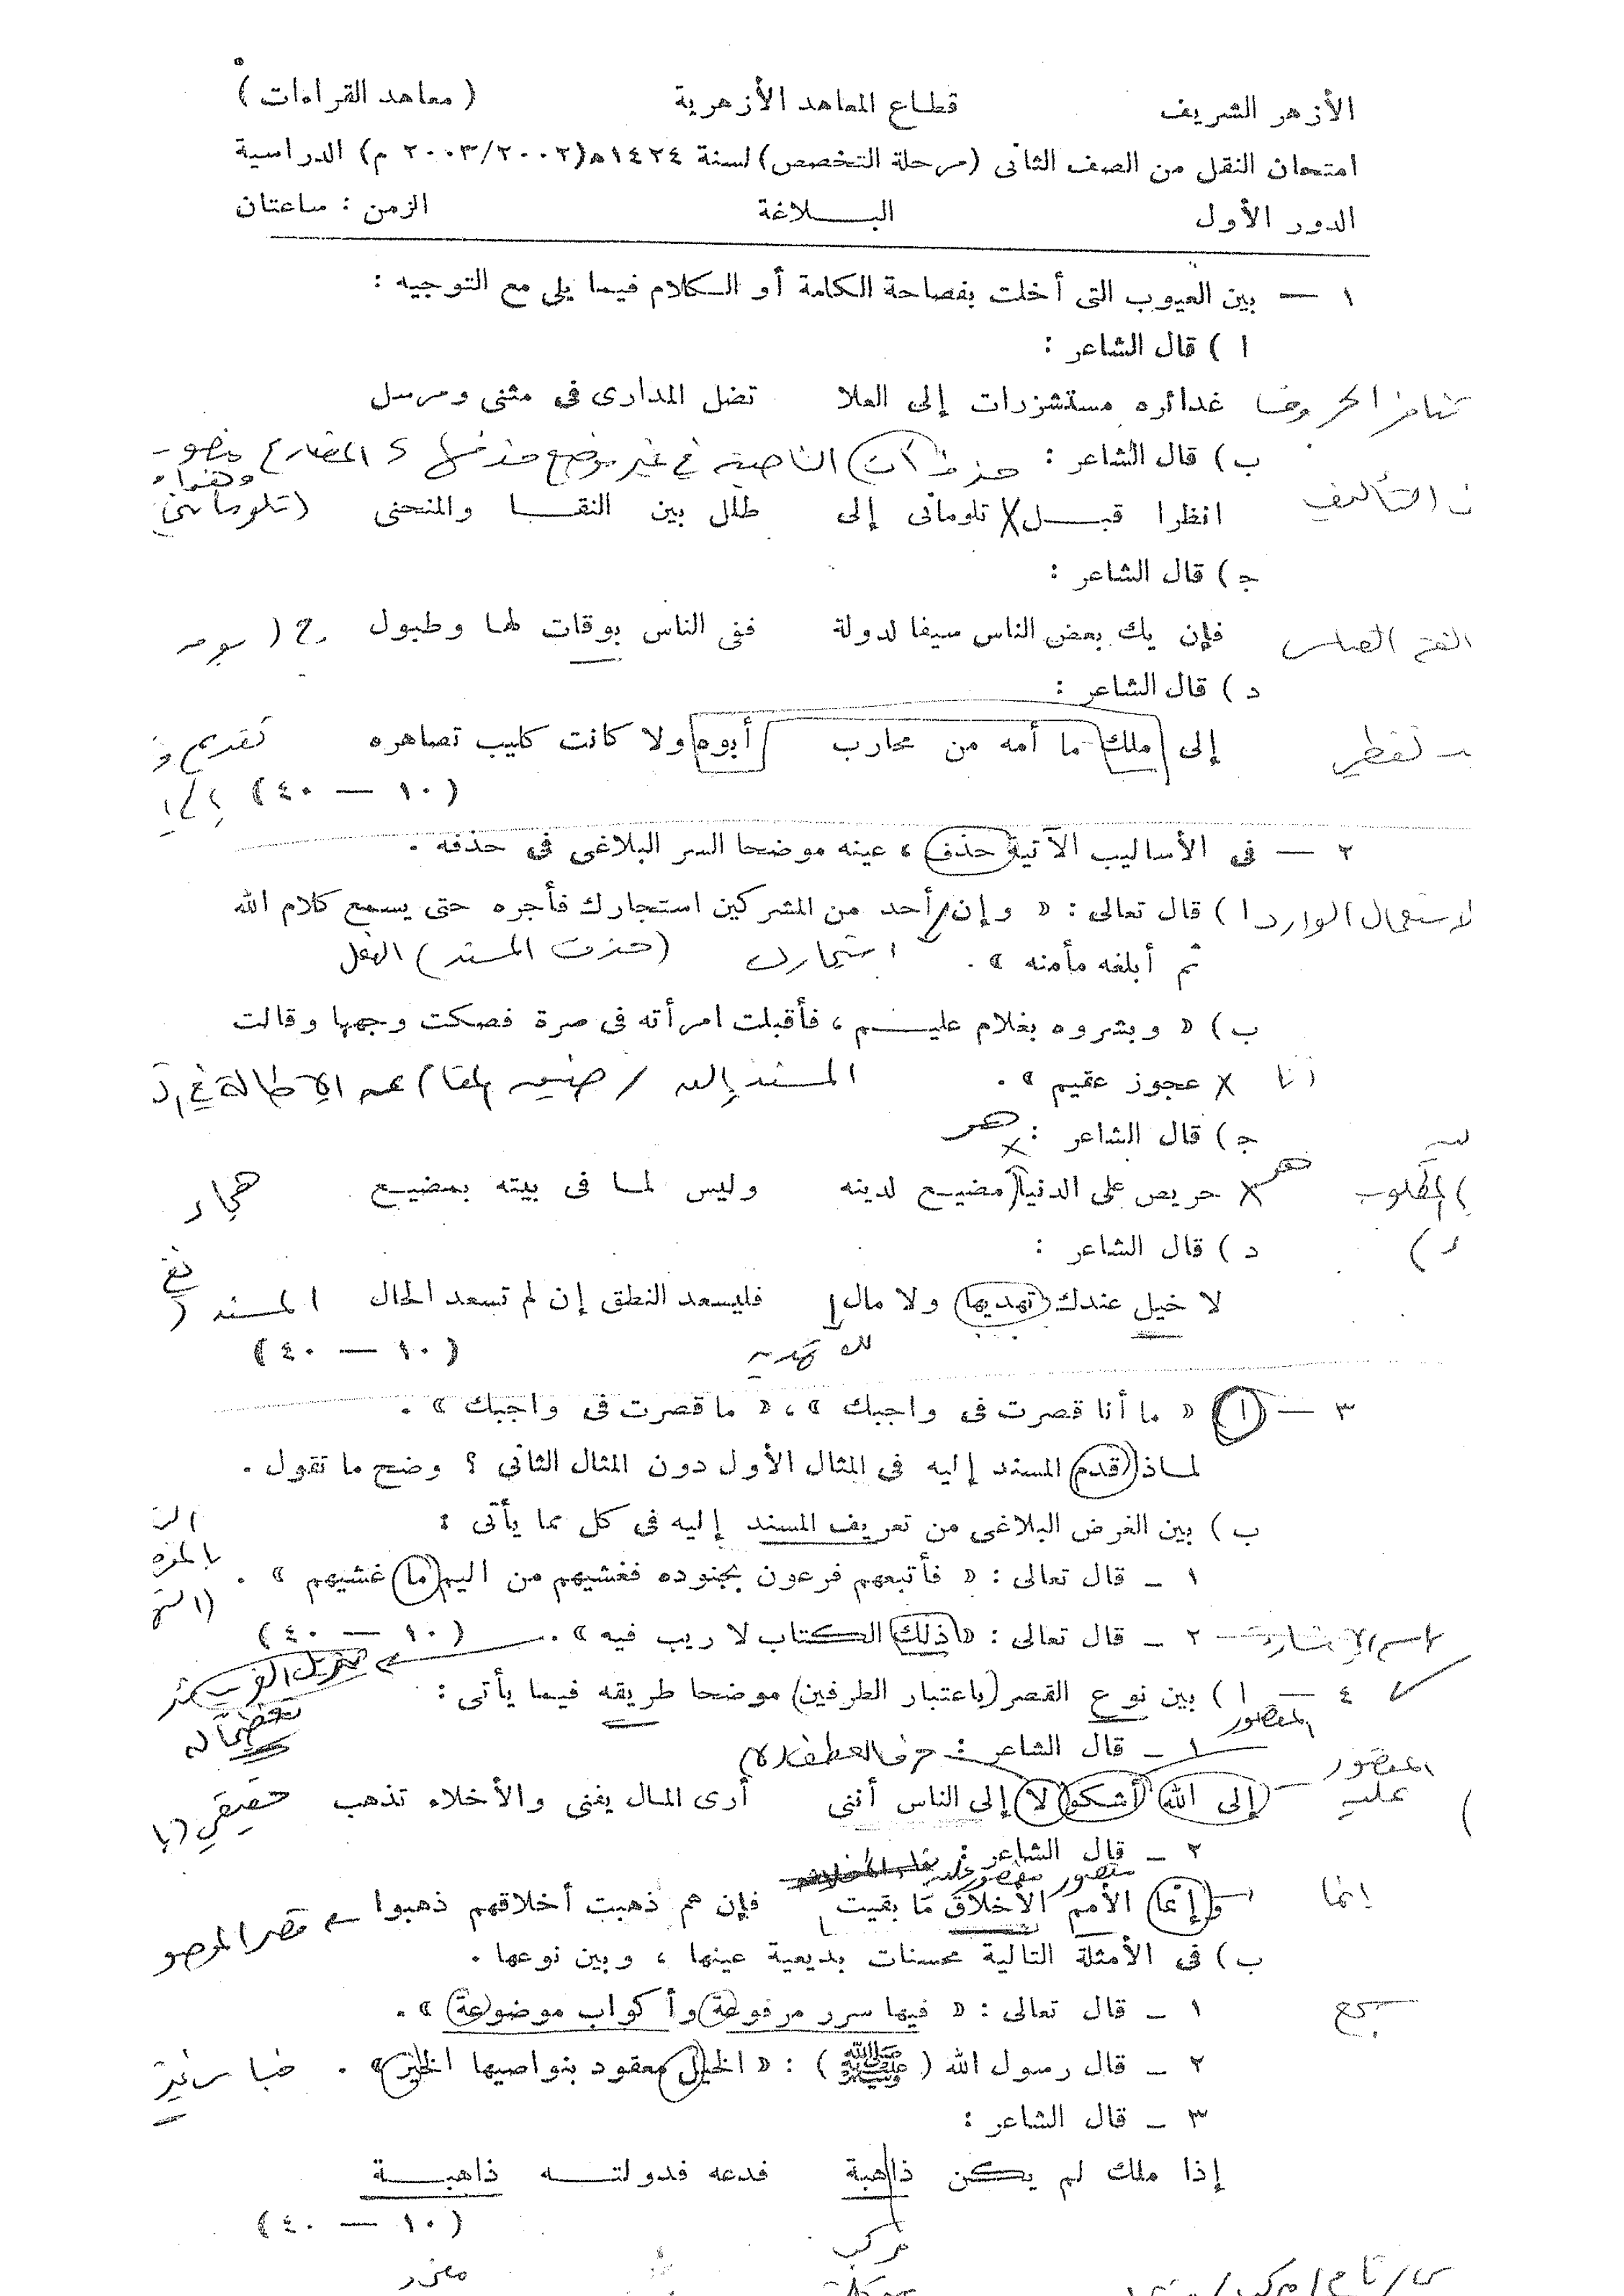 الأزهر الشريف قطاع المعاهد الأزهرية ( معاهد القراءات )
امتحان النقل من الصف الثانى (مرحلة التخصص) لسنة ١٤٢٤ه‍ (٢٠٠٣/٢٠٠٢ م) الدراسية
الدور الأول البـــلاغة الزمن : ساعتان
١ — بين العيوب التى أخلت بفصاحة الكلمة أو الكلام فيما يلى مع التوجيه :
ا ) قال الشاعر :
تنافر الحروف غدائره مستشزرات إلى العلا تضل المدارى فى مثنى ومرسل
ب) قال الشاعر : حذف (أن) الناصبة فى غير موضع حذفها
التأليف انظرا قبـــل تلومانى إلى طلل بين النقـــا والمنحنى
ج) قال الشاعر :
فإن يك بعض الناس سيفا لدولة ففى الناس بوقات لها وطبول
د ) قال الشاعر :
لفظى إلى ملك ما أمه من محارب أبوه ولا كانت كليب تصاهره تقديم
(١٠ — ٤٠)
٢ — فى الأساليب الآتية حذف ، عينه موضحا السر البلاغى فى حذفه .
الاستعمال الوارد ا ) قال تعالى : « وإن أحد من المشركين استجارك فأجره حتى يسمع كلام الله
ثم أبلغه مأمنه » . استجارك (حذف المسند) الفعل
ب) « وبشروه بغلام عليـــم ، فأقبلت امرأته فى صرة فصكت وجهها وقالت
أنا عجوز عقيم » . المسند إليه / ضيق المقام عن الإطالة فى
ج) قال الشاعر : هو
المطلوب هو حريص على الدنيا مضيـع لدينه وليس لمـا فى بيته بمضيـع
د ) قال الشاعر :
لا خيل عندك تهديها ولا مال فليسعد النطق إن لم تسعد الحال المسند
(١٠ — ٤٠)
٣ — ا ) « ما أنا قصرت فى واجبك » ، « ما قصرت فى واجبك » .
لمـاذا قدم المسند إليه فى المثال الأول دون المثال الثانى ؟ وضح ما تقول .
ب) بين الغرض البلاغى من تعريف المسند إليه فى كل مما يأتى :
١ ـ قال تعالى : « فأتبعهم فرعون بجنوده فغشيهم من اليم ما غشيهم » .
اسم الإشارة ٢ ـ قال تعالى : « ذلك الكتاب لا ريب فيه » . (١٠ — ٤٠)
٤ — ا ) بين نوع القصر (باعتبار الطرفين) موضحا طريقه فيما يأتى :
المقصور
١ ـ قال الشاعر : حرف العطف (لا)
المقصور عليه إلى الله أشكو لا إلى الناس أننى أرى المـال يفنى والأخلاء تذهب حقيقى
٢ ـ قال الشاعر :
مقصور مقصور عليه
إنما وإنما الأمم الأخلاق مَا بقيت فإن هم ذهبت أخلاقهم ذهبوا قصر
ب) فى الأمثلة التالية محسنات بديعية عينها ، وبين نوعها .
سجع ١ ـ قال تعالى : « فيها سرر مرفوعة وأكواب موضوعة » .
٢ ـ قال رسول الله (ﷺ) : « الخيل معقود بنواصيها الخير » .
٣ ـ قال الشاعر :
إذا ملك لم يكن ذا هبة فدعه فدولتـــه ذاهبـــة
(١٠ — ٤٠)
مركب
مفرد